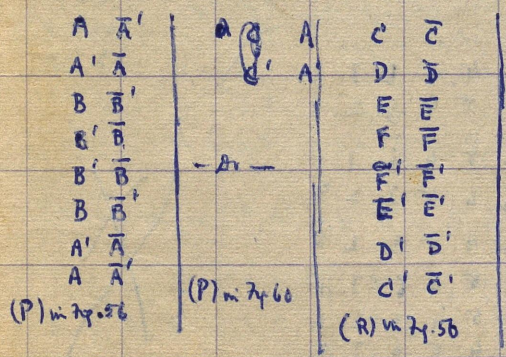 A A̅'
A' A̅
B B̅'
B' B̅
B' B̅
B B̅'
A' A̅
A A̅'
(P) in Fig. 56
A C A
C' A'
- Do -
(P) in Fig. 60
C C̅
D D̅
E E̅
F F̅
F̅' F̅'
E̅' E̅'
D' D̅'
C' C̅'
(R) in Fig. 56